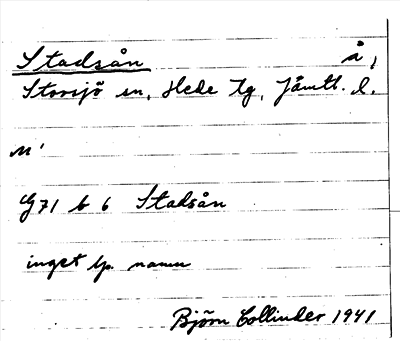 Stadsån å,
Storsjö sn, Hede tg, Jämtl. l.
M'
G 71 b 6 Stadsån
inget lp. namn
Björn Collinder 1941